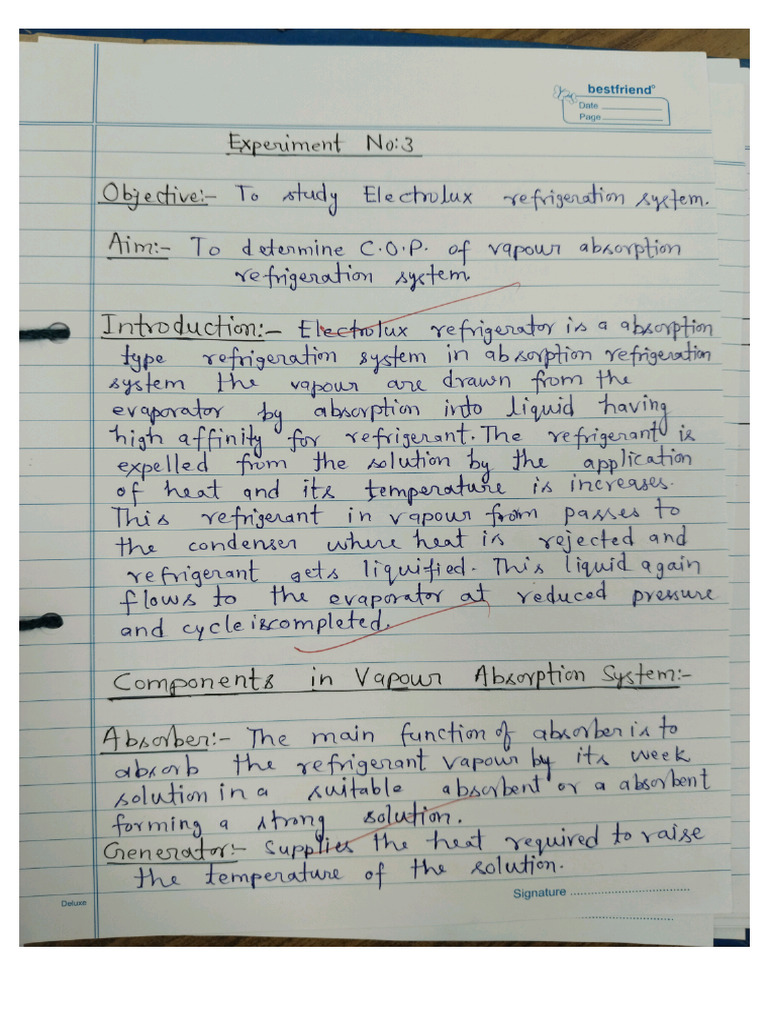 bestfriend
Date
Page
Experiment No:3
Objective:- To study Electrolux refrigeration system.
Aim:- To determine C.O.P. of vapour absorption
refrigeration system.
Introduction:- Electrolux refrigerator is a absorption
type refrigeration system in absorption refrigeration
system the vapour are drawn from the
evaporator by absorption into liquid having
high affinity for refrigerant. The refrigerant is
expelled from the solution by the application
of heat and its temperature is increases.
This refrigerant in vapour from passes to
the condenser where heat is rejected and
refrigerant gets liquified. This liquid again
flows to the evaporator at reduced pressure
and cycle is completed.
Components in Vapour Absorption System:-
Absorber:- The main function of absorber is to
absorb the refrigerant vapour by its week
solution in a suitable absorbent or a absorbent
forming a strong solution.
Generator:- Supplies the heat required to raise
the temperature of the solution.
Signature
Deluxe